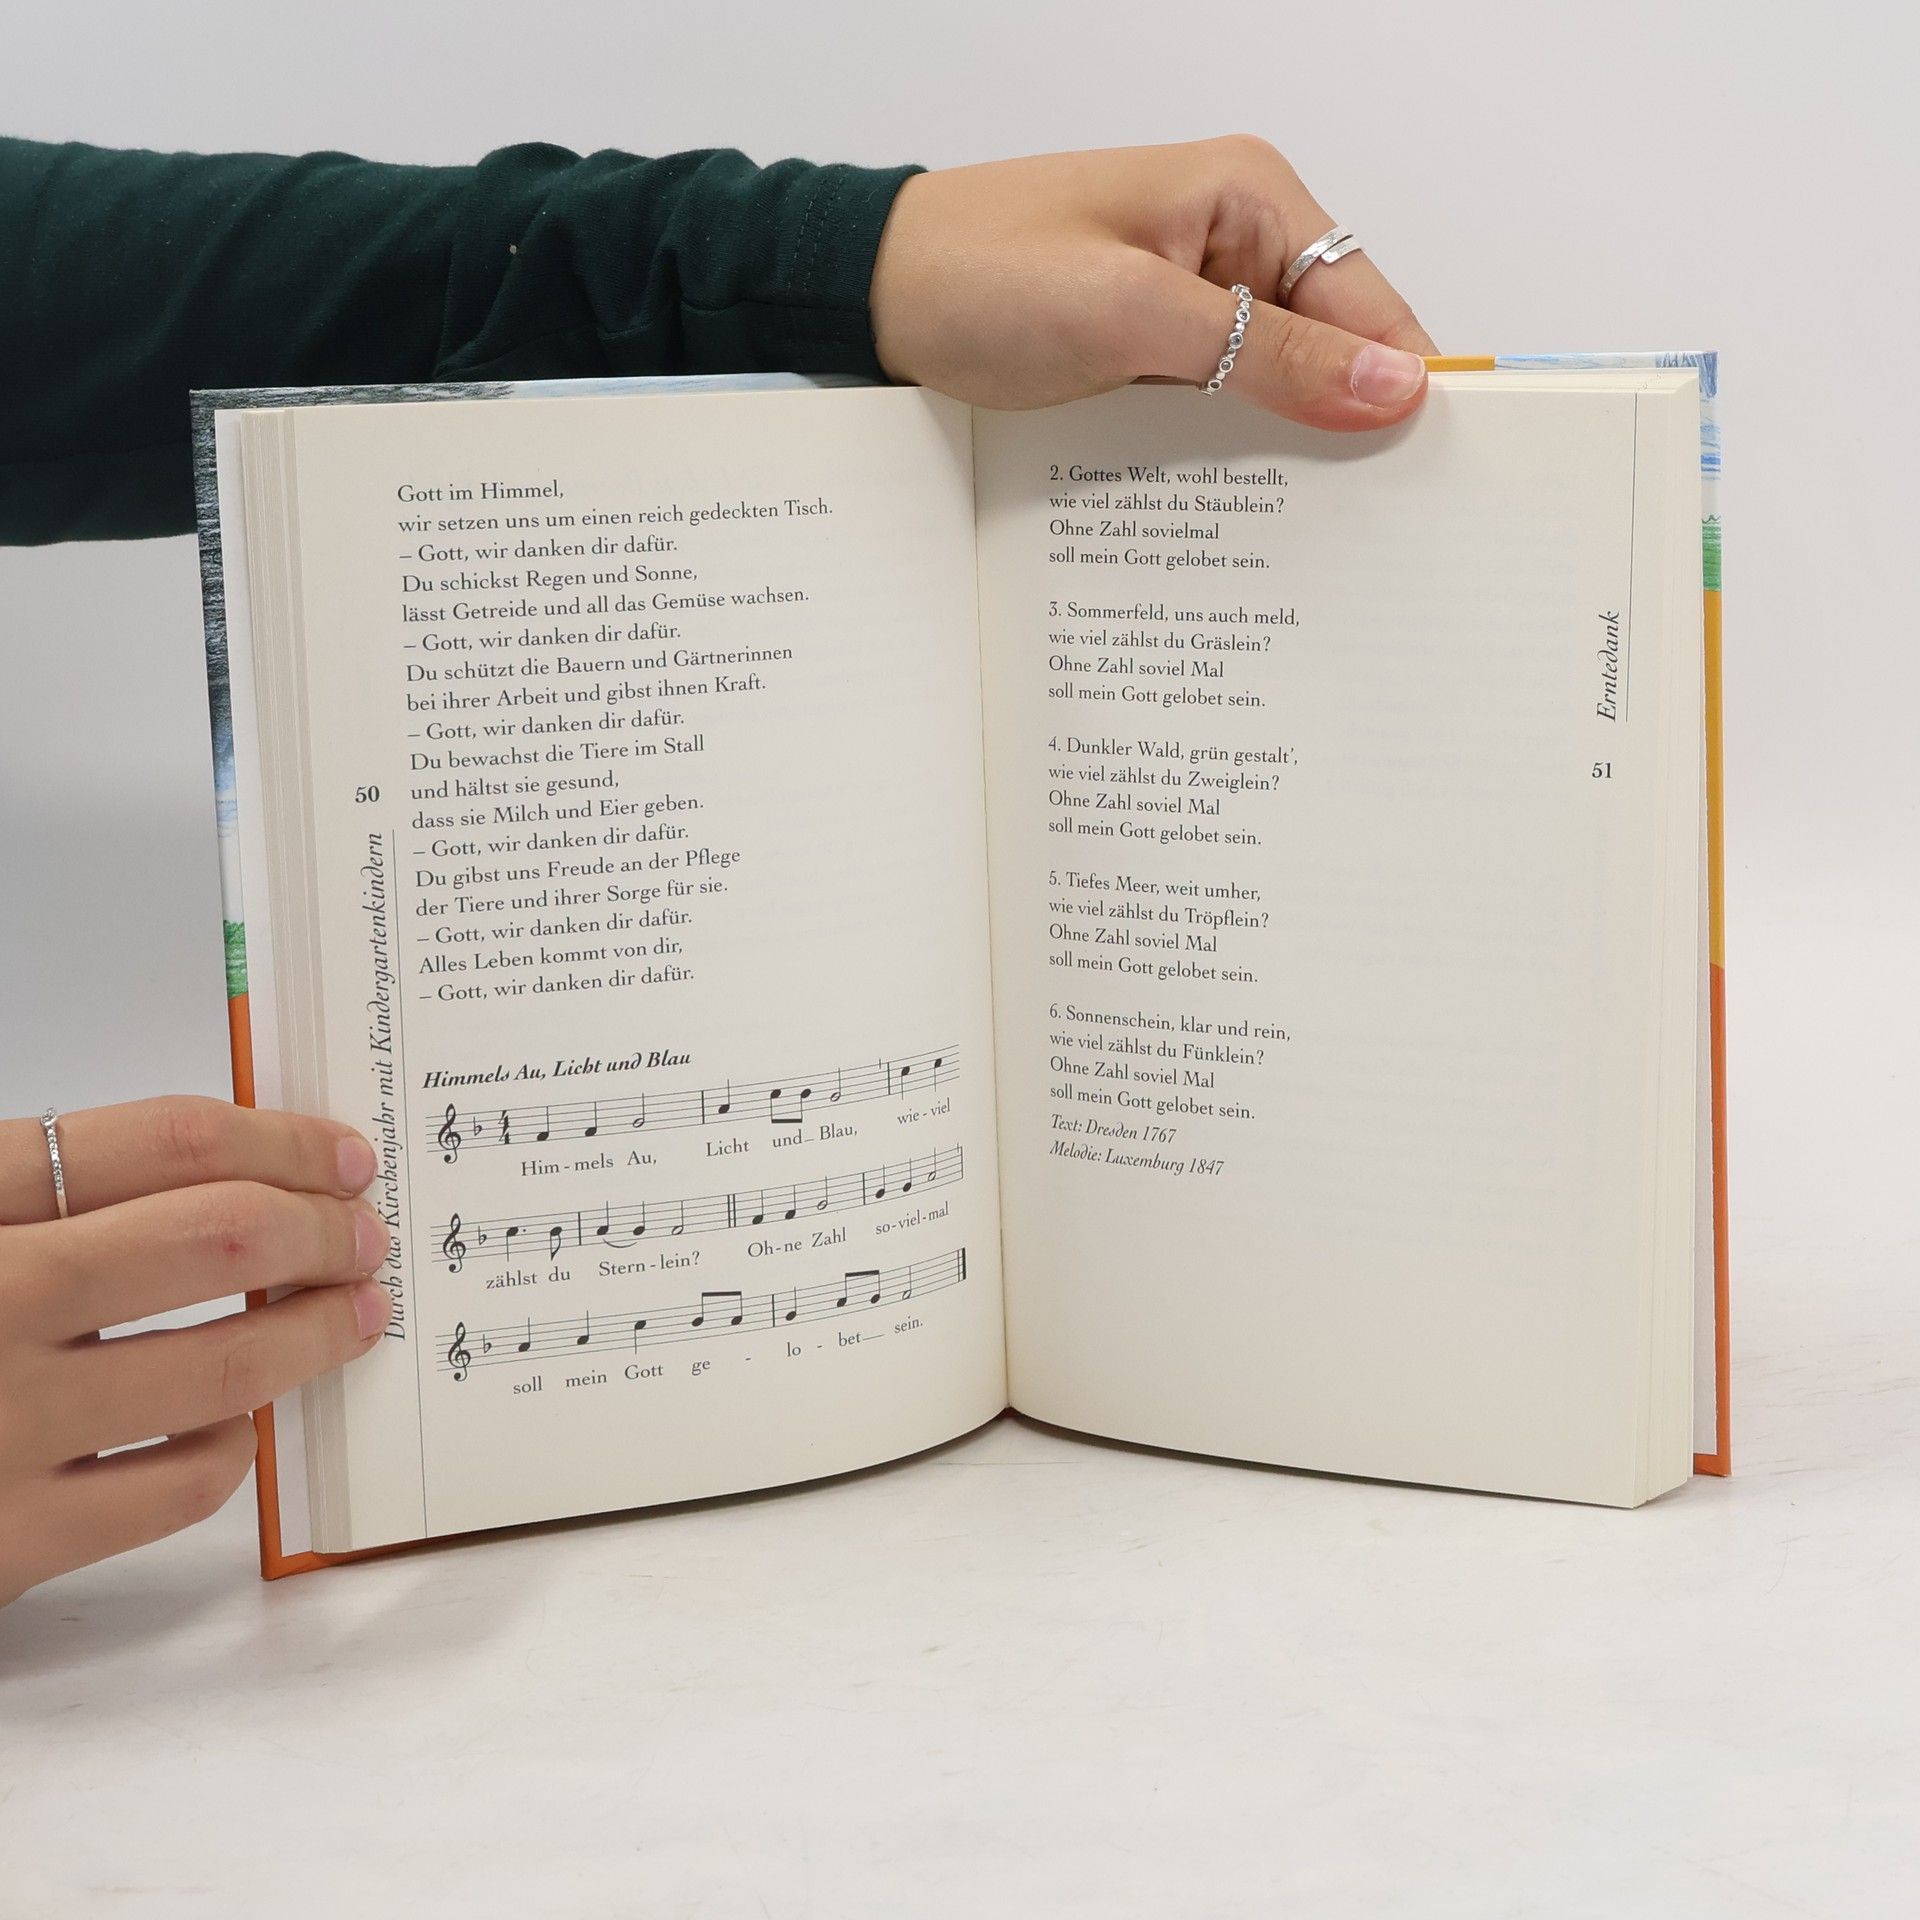 Gott im Himmel,
wir setzen uns um einen reich gedeckten Tisch.
– Gott, wir danken dir dafür.
Du schickst Regen und Sonne,
lässt Getreide und all das Gemüse wachsen.
– Gott, wir danken dir dafür.
Du schützt die Bauern und Gärtnerinnen
bei ihrer Arbeit und gibst ihnen Kraft.
– Gott, wir danken dir dafür.
Du bewachst die Tiere im Stall
und hältst sie gesund,
dass sie Milch und Eier geben.
– Gott, wir danken dir dafür.
Du gibst uns Freude an der Pflege
der Tiere und ihrer Sorge für sie.
– Gott, wir danken dir dafür.
Alles Leben kommt von dir,
– Gott, wir danken dir dafür.
50
Durch das Kirchenjahr mit Kindergartenkindern
Himmels Au, Licht und Blau
4
4
Him - mels Au, Licht und_ Blau, wie - viel
zählst du Stern - lein? Oh - ne Zahl so - viel - mal
soll mein Gott ge - lo - bet__ sein.
2. Gottes Welt, wohl bestellt,
wie viel zählst du Stäublein?
Ohne Zahl sovielmal
soll mein Gott gelobet sein.
3. Sommerfeld, uns auch meld,
wie viel zählst du Gräslein?
Ohne Zahl soviel Mal
soll mein Gott gelobet sein.
4. Dunkler Wald, grün gestalt’,
wie viel zählst du Zweiglein?
Ohne Zahl soviel Mal
soll mein Gott gelobet sein.
5. Tiefes Meer, weit umher,
wie viel zählst du Tröpflein?
Ohne Zahl soviel Mal
soll mein Gott gelobet sein.
6. Sonnenschein, klar und rein,
wie viel zählst du Fünklein?
Ohne Zahl soviel Mal
soll mein Gott gelobet sein.
Text: Dresden 1767
Melodie: Luxemburg 1847
Erntedank
51